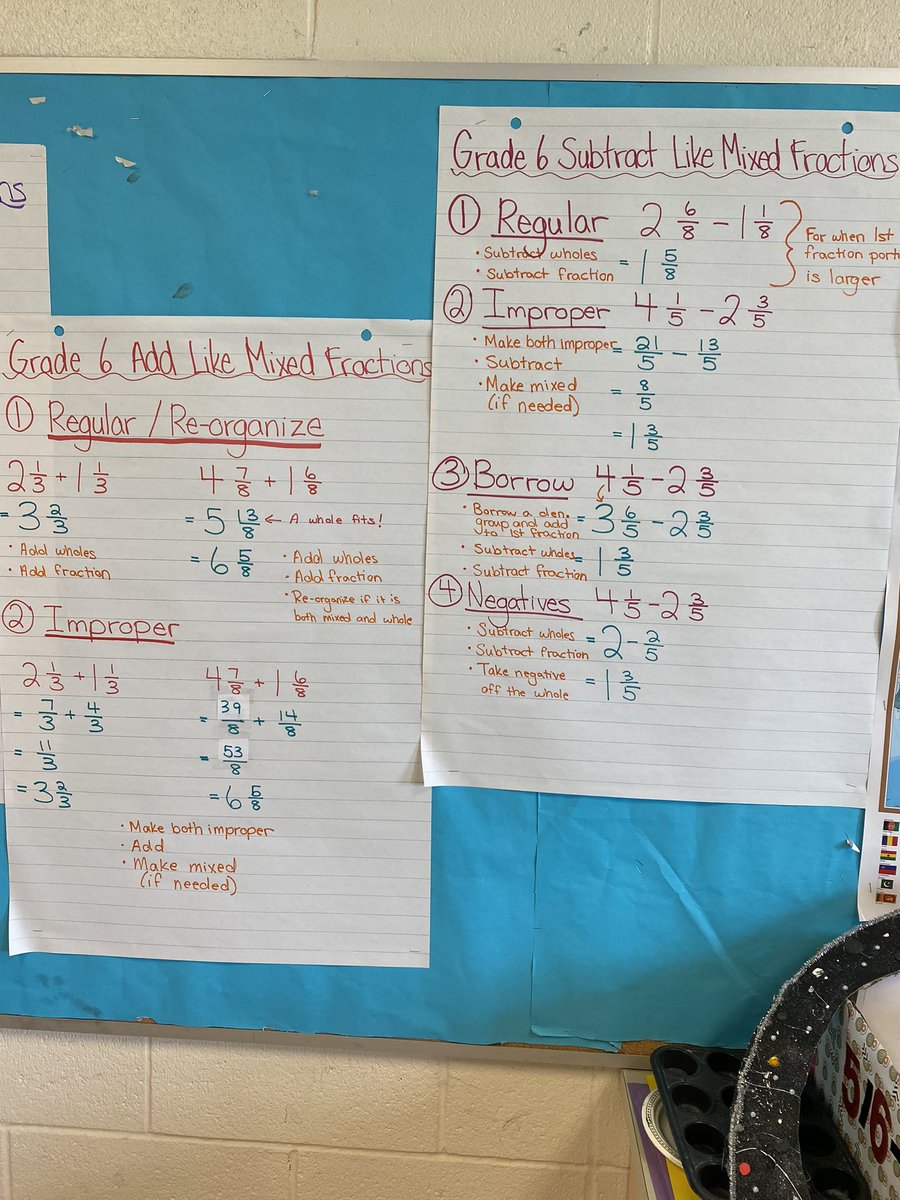 ns
Grade 6 Add Like Mixed Fractions
① Regular / Re-organize
2 1/3 + 1 1/3
= 3 2/3
• Add wholes
• Add fraction
4 7/8 + 1 6/8
= 5 13/8 ← A whole fits!
= 6 5/8
• Add wholes
• Add fraction
• Re-organize if it is
both mixed and whole
② Improper
2 1/3 + 1 1/3
= 7/3 + 4/3
= 11/3
= 3 2/3
4 7/8 + 1 6/8
= 39/8 + 14/8
= 53/8
= 6 5/8
• Make both improper
• Add
• Make mixed
(if needed)
Grade 6 Subtract Like Mixed Fractions
① Regular 2 6/8 - 1 1/8
• Subtract wholes
• Subtract fraction
= 1 5/8
For when 1st
fraction port
is larger
② Improper 4 1/5 - 2 3/5
• Make both improper
• Subtract
• Make mixed
(if needed)
= 21/5 - 13/5
= 8/5
= 1 3/5
③ Borrow 4 1/5 - 2 3/5
• Borrow a den.
group and add
to 1st fraction
= 3 6/5 - 2 3/5
• Subtract wholes
• Subtract fraction
= 1 3/5
④ Negatives 4 1/5 - 2 3/5
• Subtract wholes
• Subtract fraction
= 2 - 2/5
• Take negative
off the whole
= 1 3/5
5/6